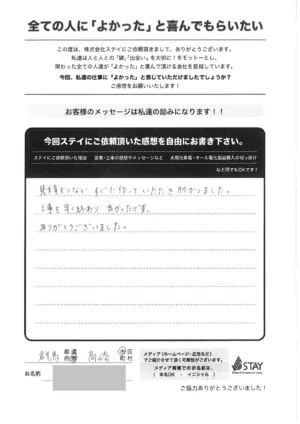 全ての人に「よかった」と喜んでもらいたい
この度は、株式会社ステイにご依頼頂きまして、ありがとうございます。
私達は人と人との「縁」「出会い」を大切に！をモットーとし、
関わった全ての人達が「よかった」と喜んで頂ける会社を目指しています。
今回、私達の仕事に「よかった」と感じていただけましたでしょうか？
ご感想をお願いいたします！
お客様のメッセージは私達の励みになります！！
今回ステイにご依頼頂いた感想を自由にお書き下さい。
ステイにご依頼頂いた理由　営業・工事の感想やメッセージなど　太陽光発電・オール電化製品購入の切っ掛け
など何でもOKです！
見積もりなど すぐに作っていただき 助かりました。
工事も早く終わり 良かったです。
ありがとうございました。
群馬 都道府県 高崎 市区町村
お名前
メディア（ホームページ・広告など）
でご紹介させて頂く可能性がございます。
メディア掲載でのお名前は、
（ 本名OK ・ イニシャル ）
STAY
ご協力ありがとうございました！